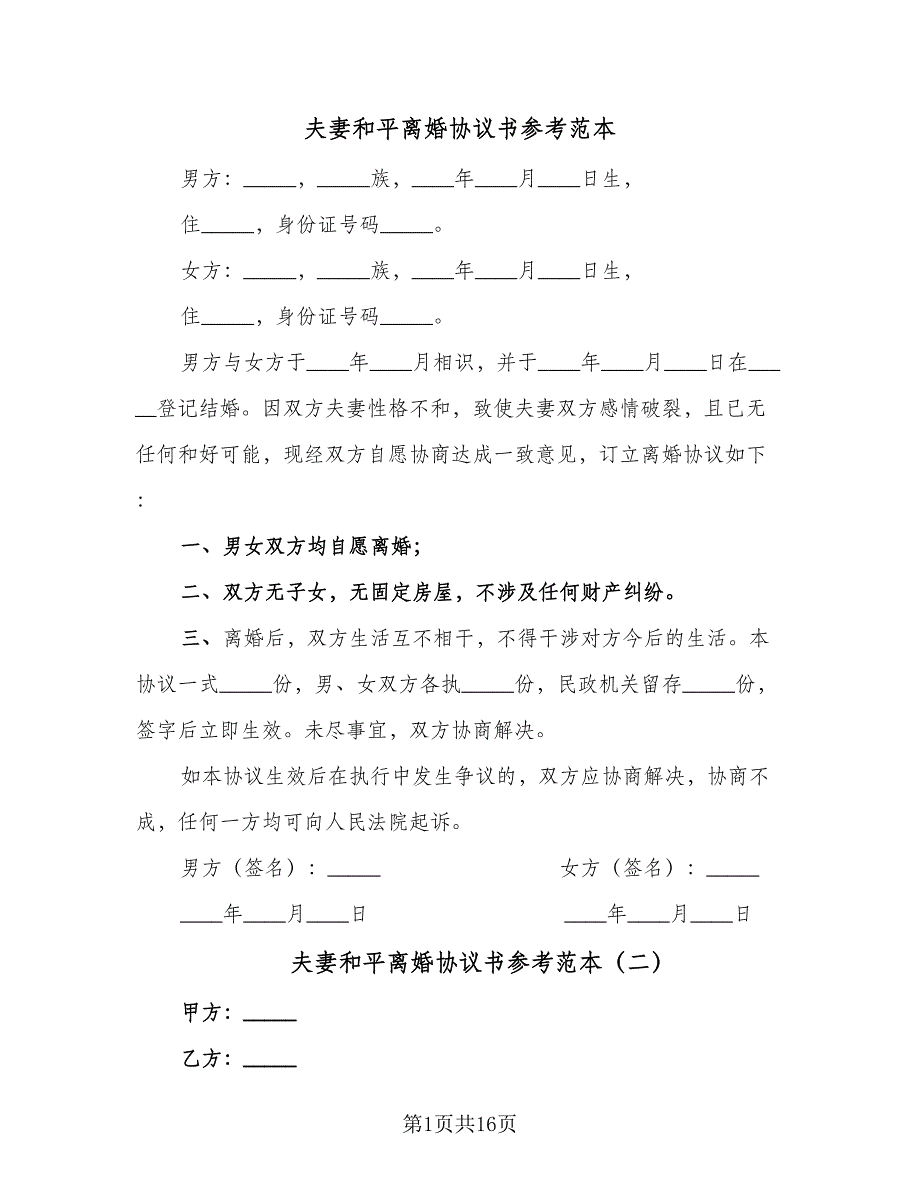 夫妻和平离婚协议书参考范本
男方：_____，_____族，____年____月____日生，
住_____，身份证号码_____。
女方：_____，_____族，____年____月____日生，
住_____，身份证号码_____。
男方与女方于____年____月相识，并于____年____月____日在___
__登记结婚。因双方夫妻性格不和，致使夫妻双方感情破裂，且已无
任何和好可能，现经双方自愿协商达成一致意见，订立离婚协议如下
：
一、男女双方均自愿离婚；
二、双方无子女，无固定房屋，不涉及任何财产纠纷。
三、离婚后，双方生活互不相干，不得干涉对方今后的生活。本
协议一式_____份，男、女双方各执_____份，民政机关留存_____份，
签字后立即生效。未尽事宜，双方协商解决。
如本协议生效后在执行中发生争议的，双方应协商解决，协商不
成，任何一方均可向人民法院起诉。
男方（签名）：_____ 女方（签名）：_____
____年____月____日 ____年____月____日
夫妻和平离婚协议书参考范本（二）
甲方：_____
乙方：_____
第1页共16页